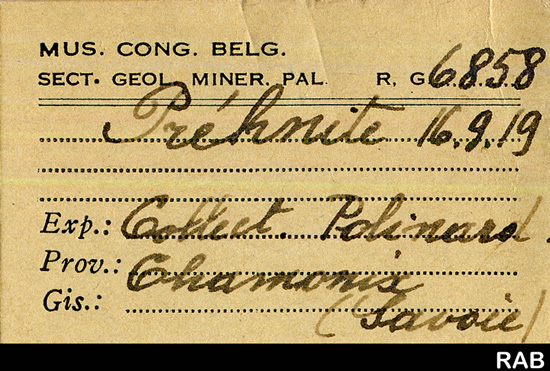 MUS. CONG. BELG.
SECT. GEOL. MINER. PAL. R. G. 6858
Préhnite 16.9.19
Exp.: Collect. Polinard.
Prov.: Chamonix
Gis.: (Savoie)
RAB